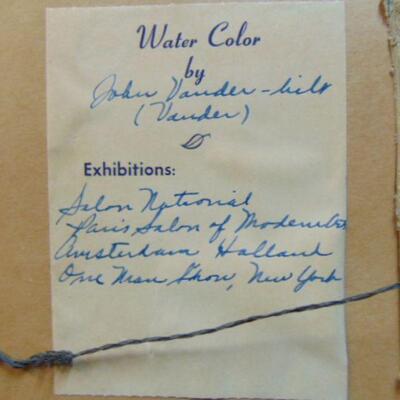 Water Color
by
John Vander-bilt
(Vander)
Exhibitions:
Salon National
Paris Salon of Modernists
Amsterdam Holland
One Man Show, New York